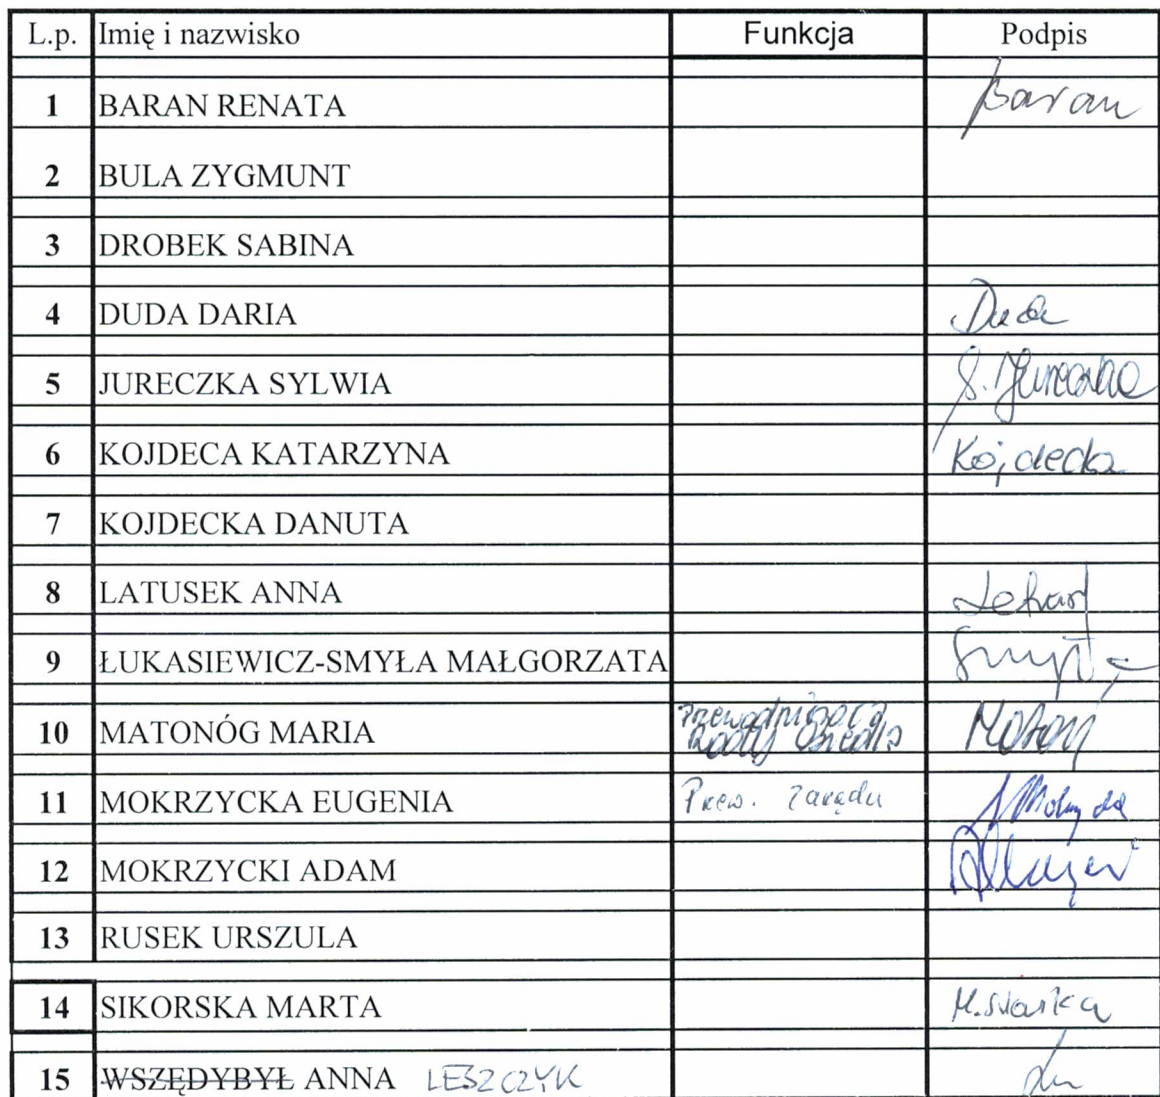 L.p. Imię i nazwisko Funkcja Podpis
1 BARAN RENATA Baran
2 BULA ZYGMUNT
3 DROBEK SABINA
4 DUDA DARIA Duda
5 JURECZKA SYLWIA S. Jureczka
6 KOJDECA KATARZYNA Kojdecka
7 KOJDECKA DANUTA
8 LATUSEK ANNA
9 ŁUKASIEWICZ-SMYŁA MAŁGORZATA
10 MATONÓG MARIA Przewodnicząca
Rady Osiedla
11 MOKRZYCKA EUGENIA Przew. Zarządu
12 MOKRZYCKI ADAM
13 RUSEK URSZULA
14 SIKORSKA MARTA
15 WSZĘDYBYŁ ANNA LESZCZYK